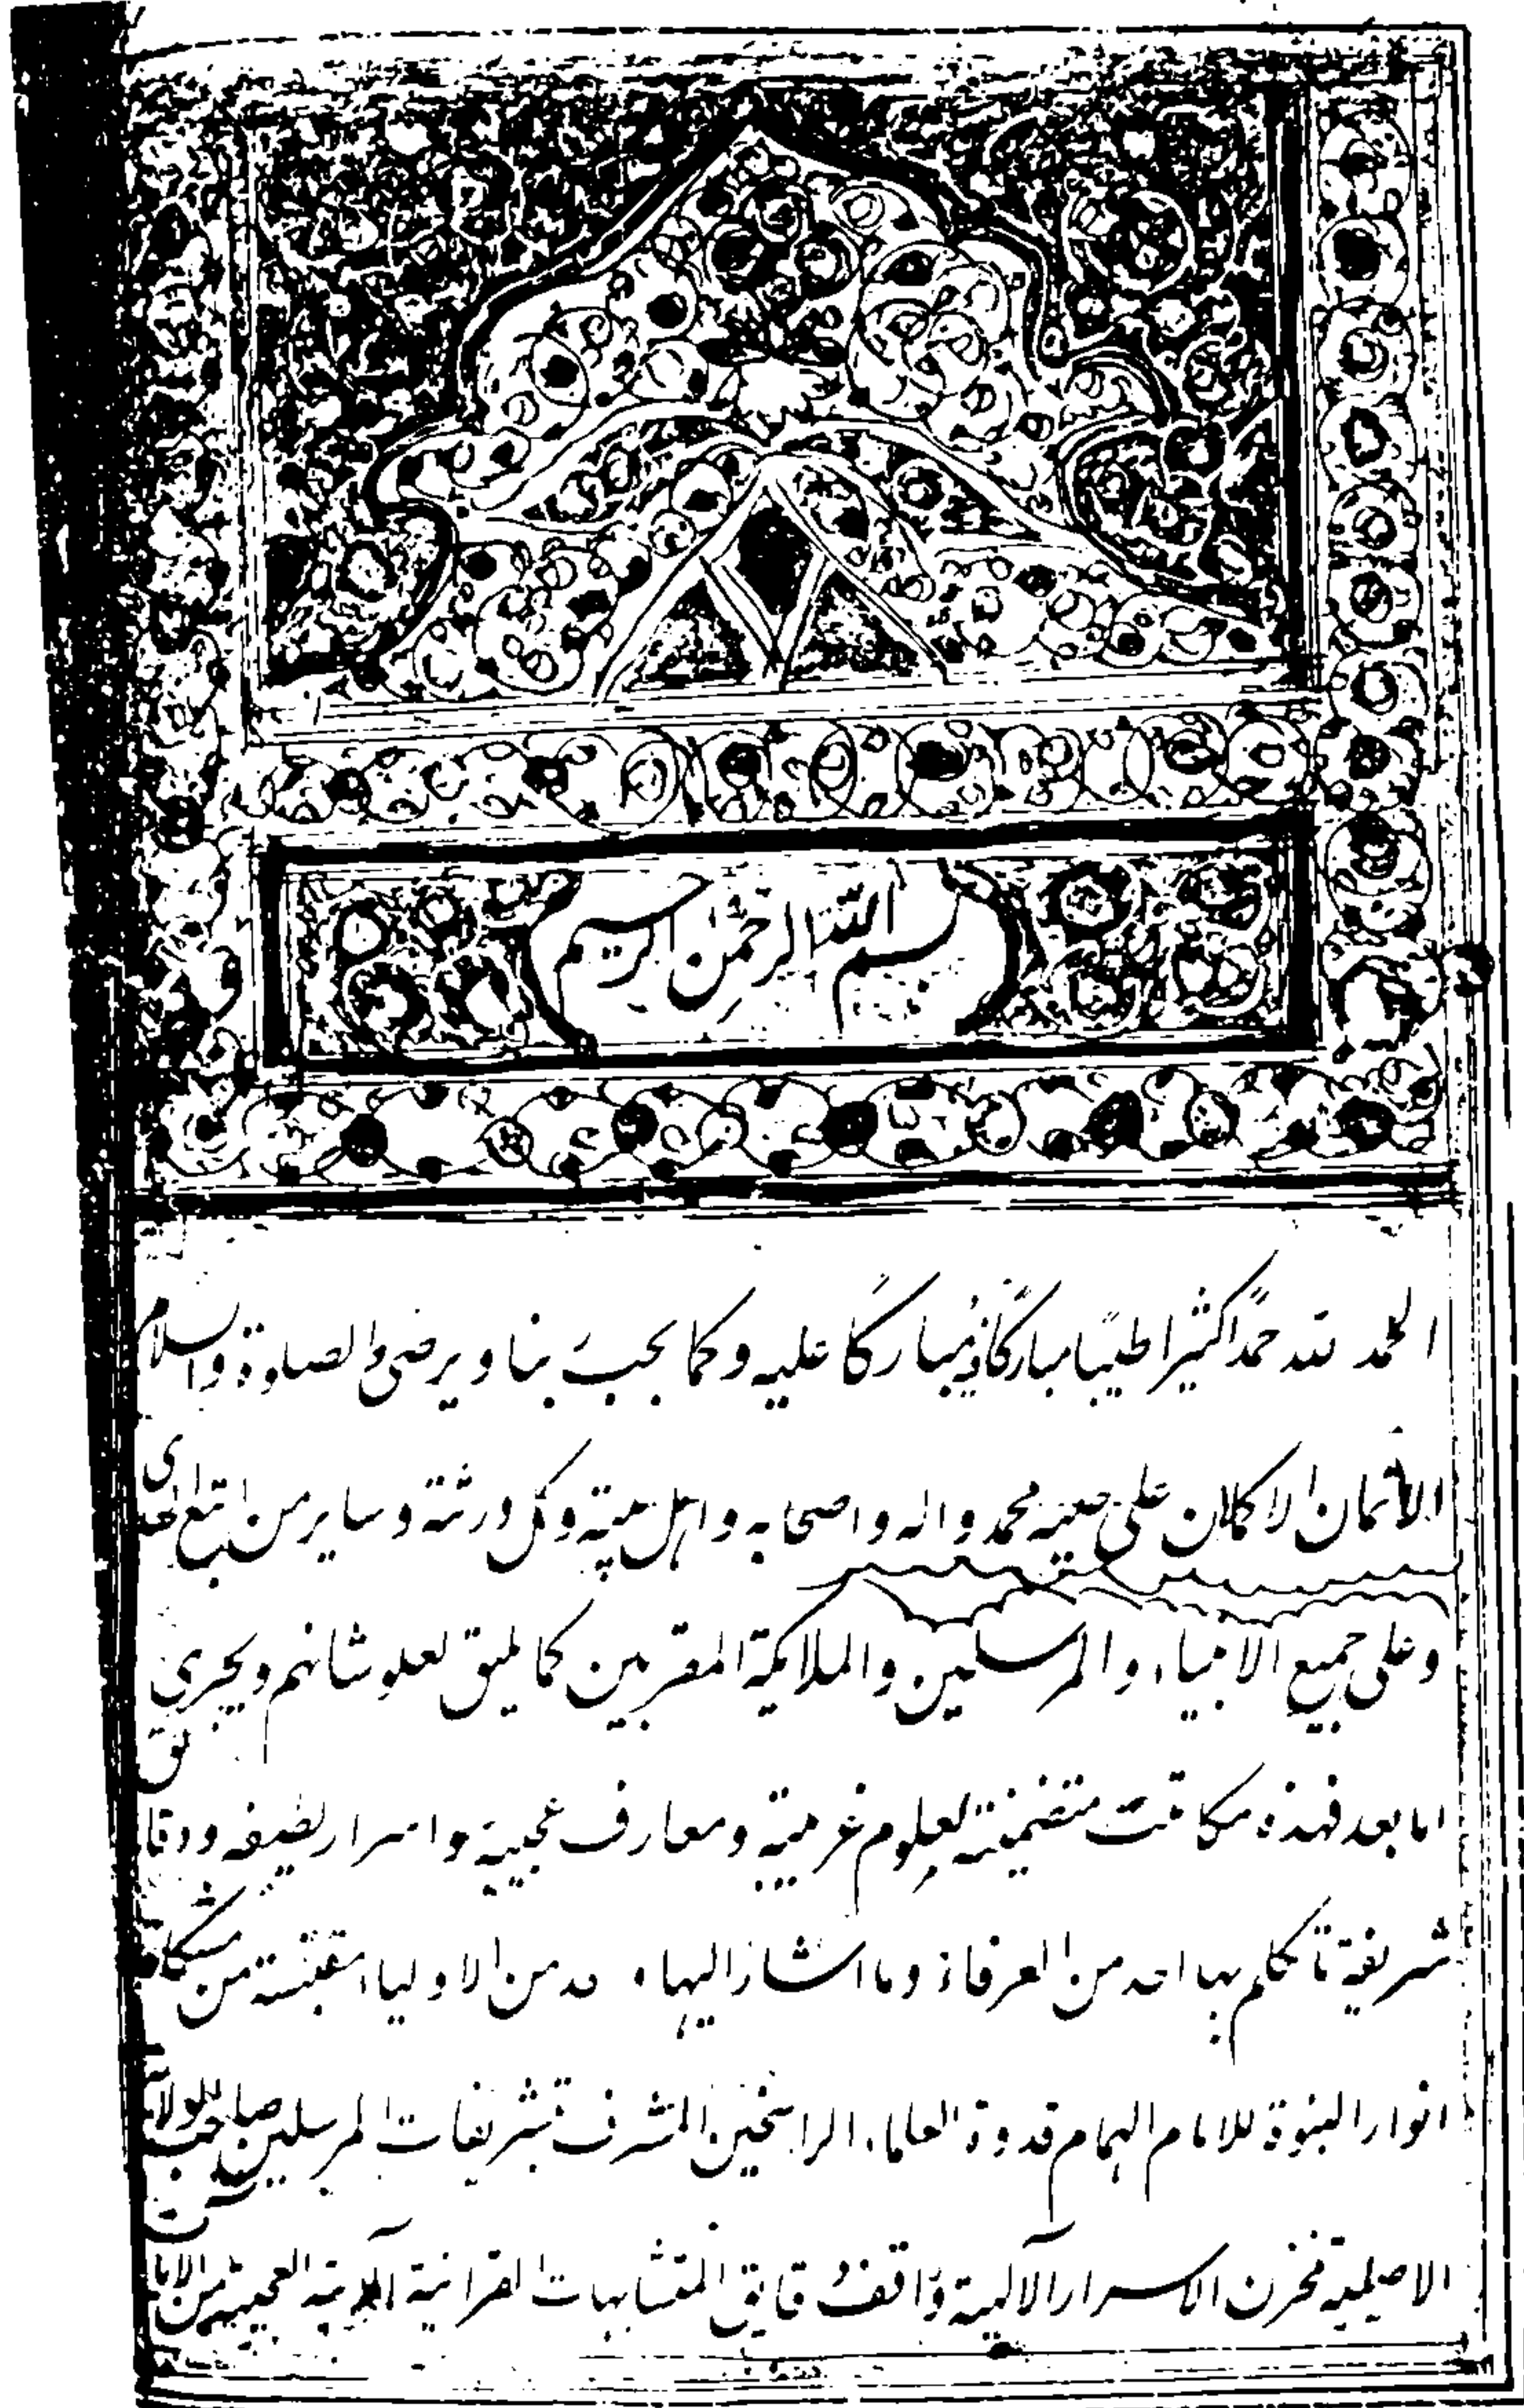 بسم الله الرحمن الرحيم
الحمد لله حمدًا كثيرا طيبًا مباركًا فيه مباركًا عليه وكما يحب ربنا ويرضى والصلوة والسلام
الاتمان الاكملان على صفيه محمد واله واصحابه واهل بيته وكل ورثته وساير من اتبع الهدى
وعلى جميع الانبياء والمرسلين والملايكة المقربين كما يليق لعلو شانهم ويحري
اما بعد فهذه مكاتيب متضمنة لعلوم غريبة ومعارف عجيبة واسرار لطيفه ودقايق
شريفة ما تكلم بها احد من العرفاء وما اشار اليها احد من الاولياء مقتبسة من مشكاة
انوار النبوة للامام الهمام قدوة العلماء الراسخين المشرف بتشريفات المرسلين صاحب الولاية
الاصلية مخزن الاسرار الآلهية واقف دقايق المتشابهات القرانية العجيبة من الايات